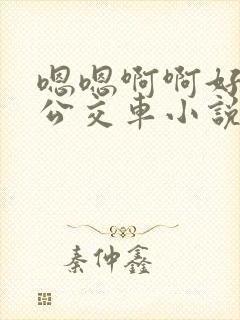 嗯嗯啊啊好
公交車小説
秦仲鑫